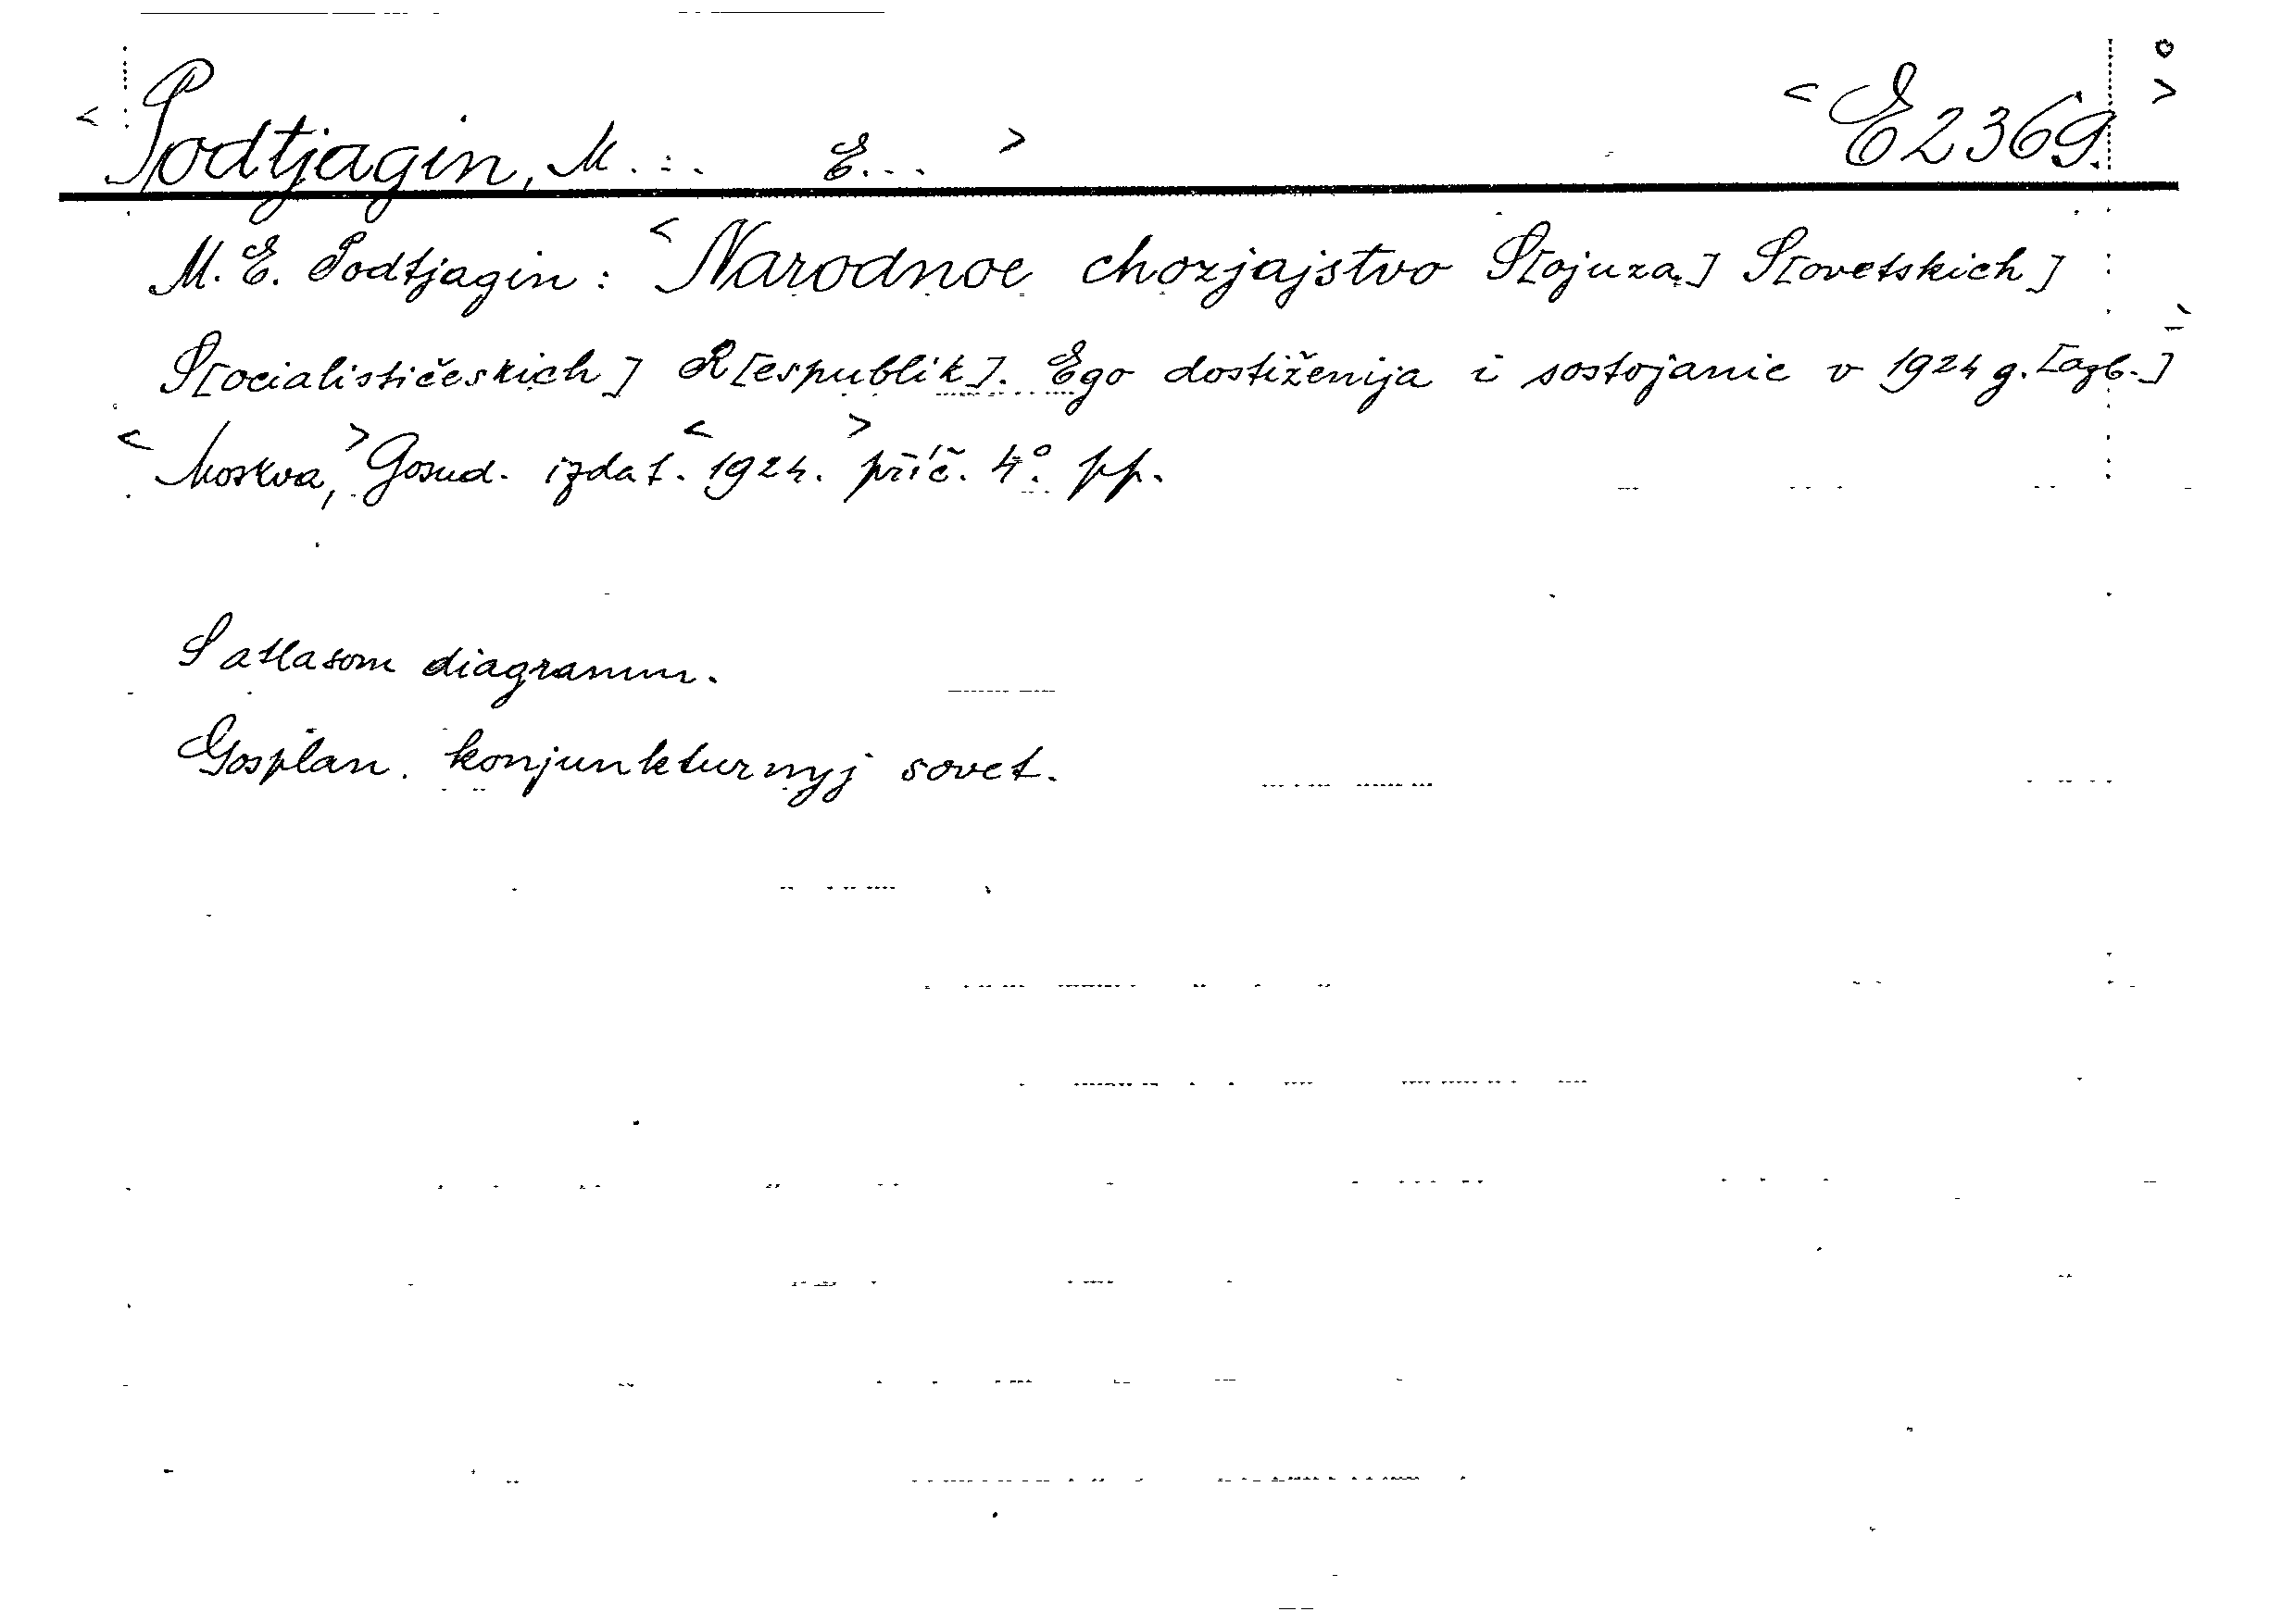 <Podtjagin, M... E...> <E 2369.>
M. E. Podtjagin: <Narodnoe chozjajstvo S[ojuza] S[ovetskich]
S[ocialističeskich] R[espublik]. Ego dostiženija i sostojanie v 1924 g. [azb.]
<Moskva,> Gosud. izdat. <1924.> příč. 4°. pp.
S atlasom diagramm.
Gosplan. konjunkturnyj sovet.